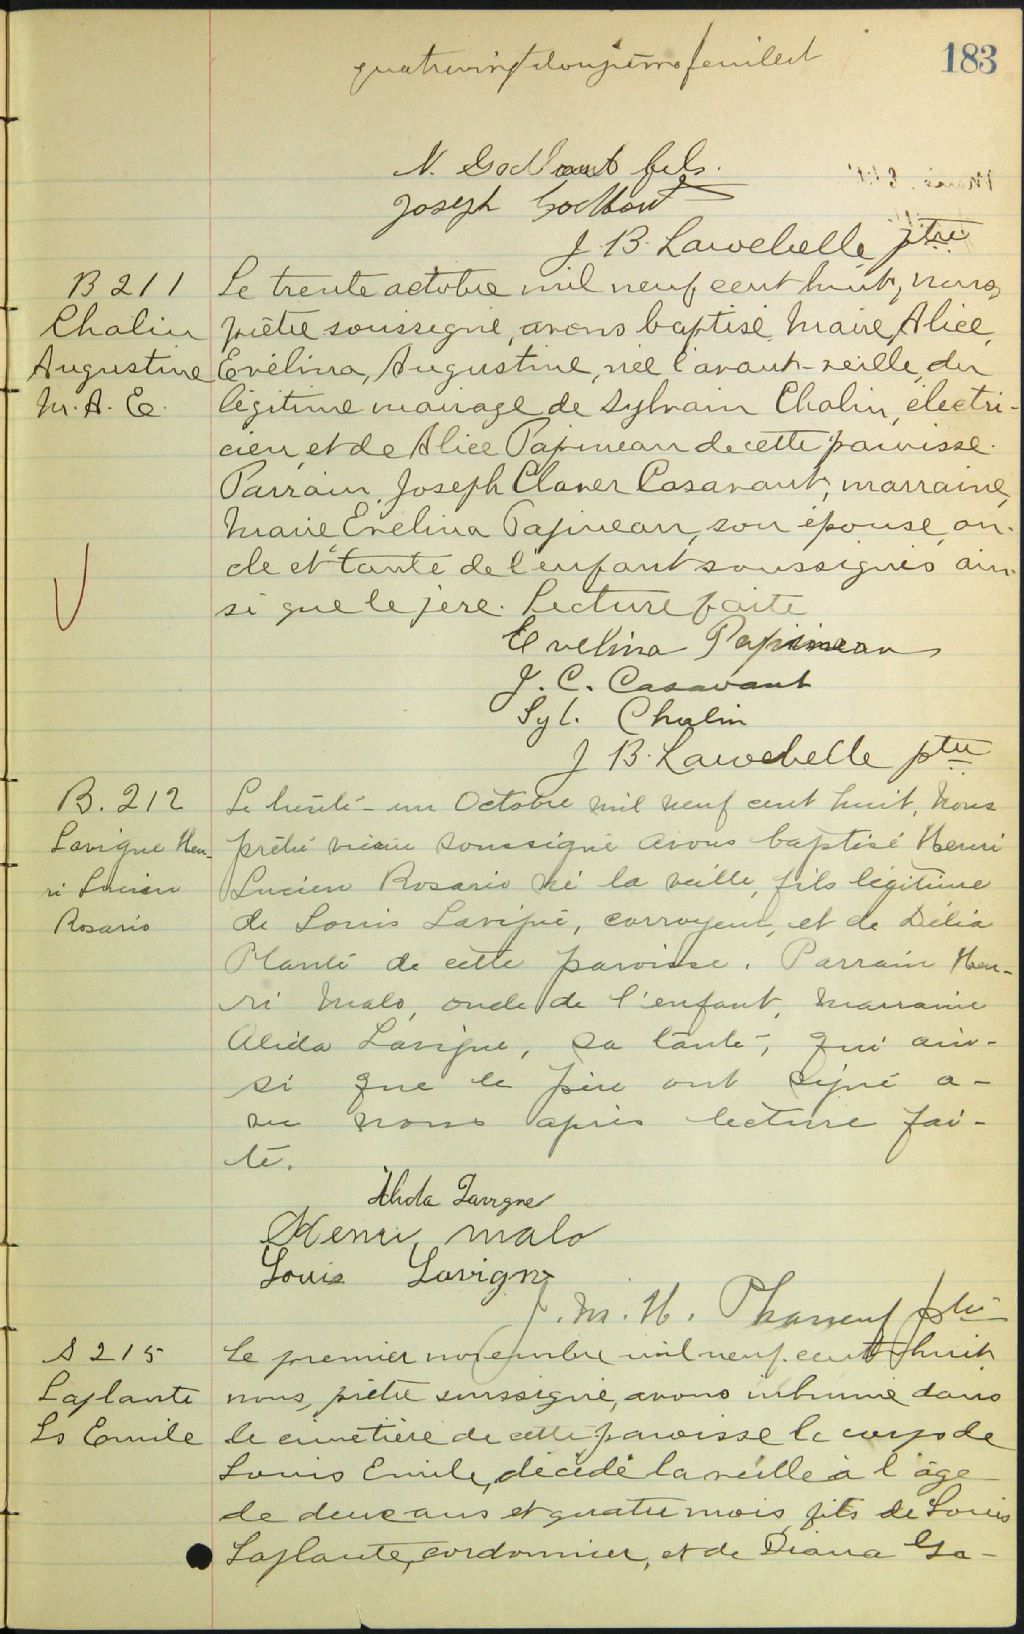 quatrevingtdouzième feuillet
183
N. Godbout fils.
Joseph Godbout
J. B. Larochelle ptre
B 211
Chalin
Augustine
M. A. E.
Le trente octobre mil neuf cent huit, nous,
prêtre soussigné, avons baptisé Marie, Alice,
Evélina, Augustine, née l'avant-veille, du
légitime mariage de Sylvain Chalin, électri-
cien, et de Alice Papineau de cette paroisse.
Parrain, Joseph Claver Casavant, marraine,
Marie Evélina Papineau, son épouse, on-
cle et tante de l'enfant soussignés ain-
si que le père. Lecture faite
Evelina Papineau
J. C. Casavant
Syl. Chalin
J B. Larochelle ptre
B. 212
Lavigne Hen-
ri Lucien
Rosario
Le trente-un Octobre mil neuf cent huit, nous
prêtre vicaire soussigné avons baptisé Henri
Lucien Rosario né la veille, fils légitime
de Louis Lavigne, corroyeur, et de Délia
Plante de cette paroisse. Parrain Hen-
ri Malo, oncle de l'enfant, marraine
Alida Lavigne, sa tante, qui ain-
si que le père ont signé a-
vec nous après lecture fai-
te.
Alida Lavigne
Henri Malo
Louis Lavigne
J. M. H. Phaneuf ptre
S 215
Laplante
Ls Emile
Le premier novembre mil neuf cent huit
nous, prêtre soussigné, avons inhumé dans
le cimetière de cette paroisse le corps de
Louis Emile, décédé la veille à l'âge
de deux ans et quatre mois, fils de Louis
Laplante, cordonnier, et de Diana Ga-